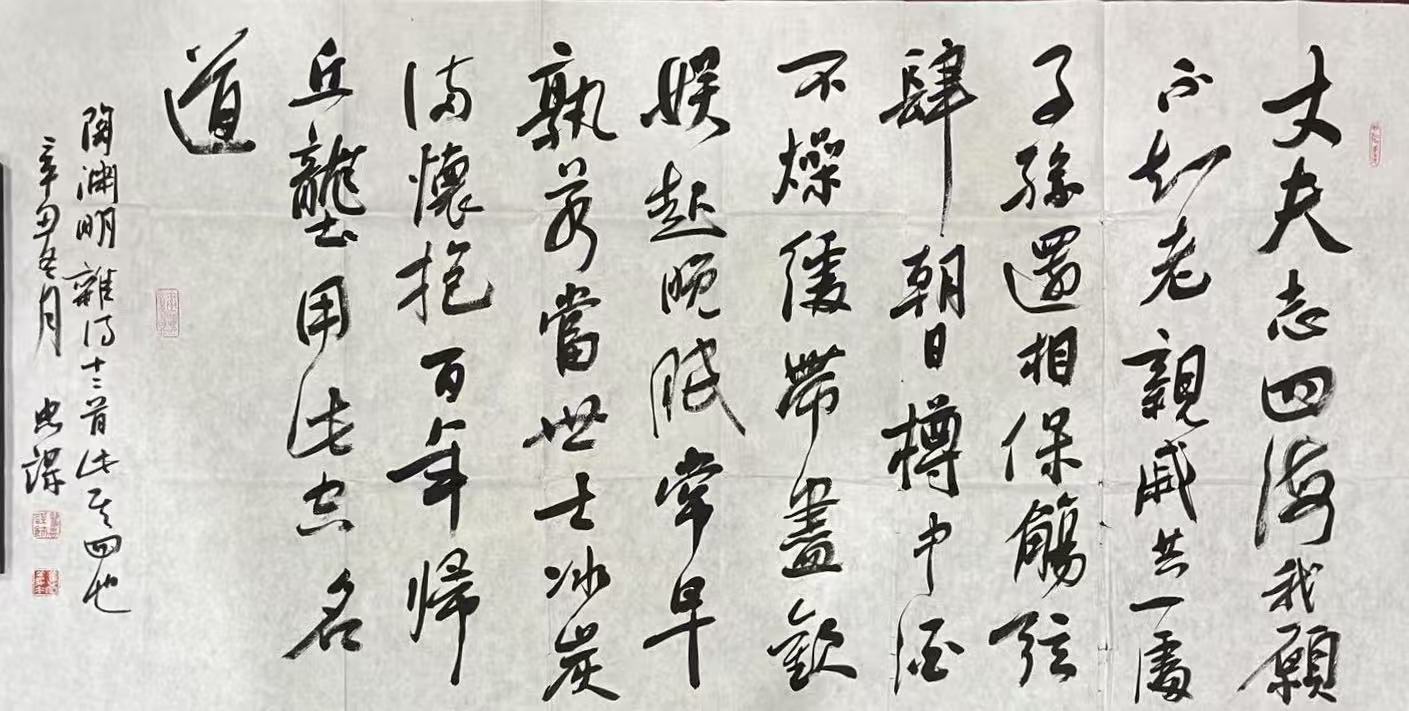 丈夫志四海我願
不知老親戚共一處
子孫還相保觴弦
肆朝日樽中酒
不燥緩帶盡歡
娱起晚眠常早
孰若當世士冰炭
滿懷抱百年歸
丘壟用此空名
道
陶淵明雜詩十二首此其四也
辛丑冬月 忠謀